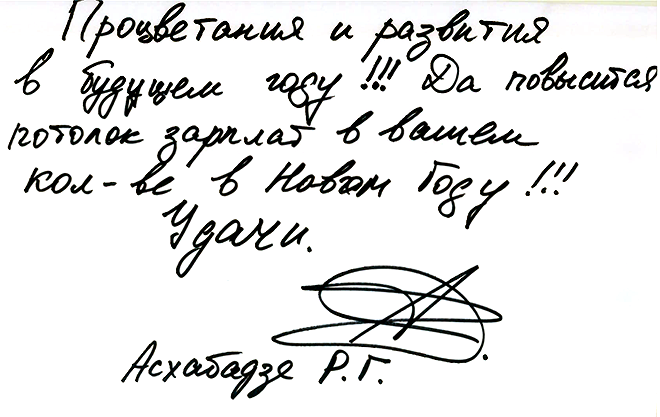 Процветания и развития
в будущем году!!! Да повысится
потолок зарплат в вашем
кол-ве в Новом Году!!!
Удачи.
Асхабадзе Р.Г.